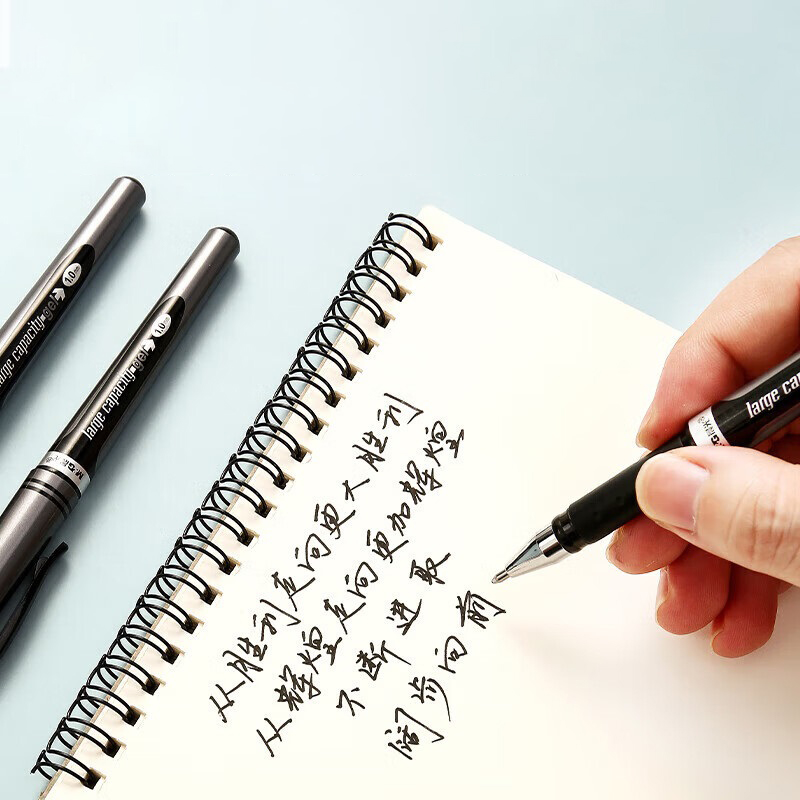 从胜利走向更大胜利
从辉煌走向更加辉煌
不断进取
阔步向前
large capacity gel
1.0
large capacity gel
1.0
M&G
large ca